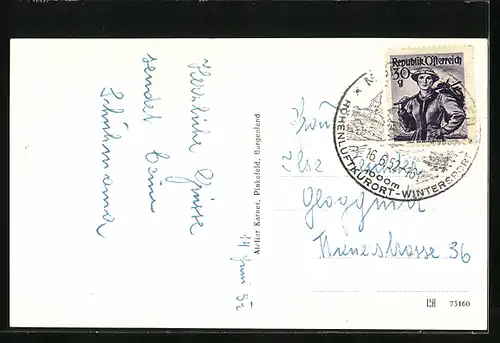 Herzliche Grüsse
sendet
14 Juni 52
Atelier Karner, Pinkafeld, Burgenland
Republik Österreich
30
g
16.6.52
1000m
HÖHENLUFTKURORT-WINTERSPORT
Frau
Ilse
Gloggnitz
Wienerstrasse 36
73160